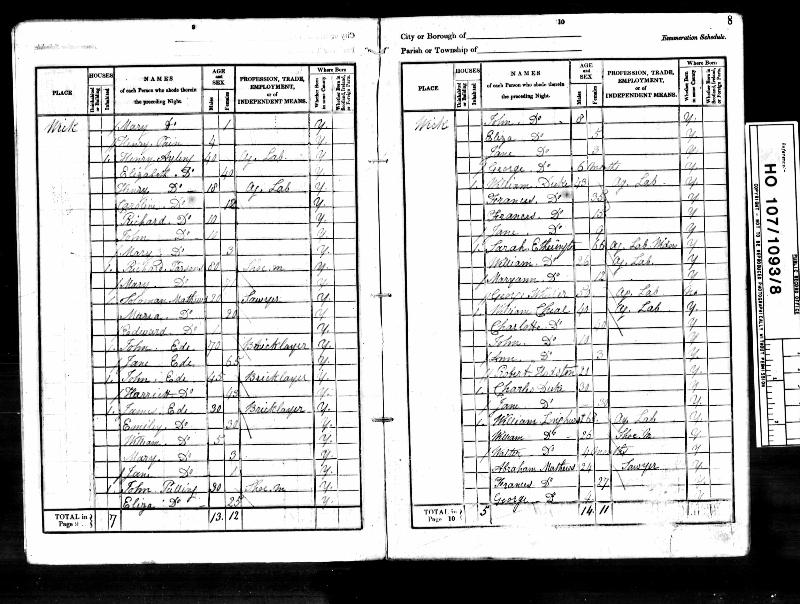 9
City or
PLACE
HOUSES
Uninhabited or Building
Inhabited
NAMES
of each Person who abode therein
the preceding Night.
AGE and SEX
Males
Females
PROFESSION, TRADE,
EMPLOYMENT,
or of
INDEPENDENT MEANS.
Where Born
Whether Born in same County
Whether Born in Scotland, Ireland, or Foreign Parts.
Wick Mary Do 1 Y.
Henry Pain 4 Y
1 Henry 40 Ag. Lab. Y.
Elizabeth Do 40 Y.
Henry Do 18 Ag. Lab Y.
Caroline Do 12 Y.
Richard Do 10 Y.
John Do Y.
Mary Do 3 Y.
1 Richard Parsons 80 Shoe m Y.
Mary Do Y.
1 Soloman Mathews 20 Sawyer Y.
Maria Do 20 Y.
Edward Do 1 Y.
1 John Ede 70 Bricklayer Y.
Jane Ede 65 Y.
1 John Ede 45 Bricklayer Y.
Harriett Do 45 Y.
1 James Ede 30 Bricklayer Y.
Emiley Do 30 Y.
William Do 5 Y.
Mary Do 3 Y.
Jane Do 1 Y.
1 John Pulling 30 Shoe m Y.
Eliza Do 25 Y.
TOTAL in Page 9 7 13 12
10
8
City or Borough of
Parish or Township of
Enumeration Schedule.
PLACE
HOUSES
Uninhabited or Building
Inhabited
NAMES
of each Person who abode therein
the preceding Night.
AGE and SEX
Males
Females
PROFESSION, TRADE,
EMPLOYMENT,
or of
INDEPENDENT MEANS.
Where Born
Whether Born in same County
Whether Born in Scotland, Ireland, or Foreign Parts.
Wick John Do 8 Y.
Eliza Do 5 Y
Jane Do 3 Y.
George Do 6 month Y.
1 William Duke 43 Ag. Lab Y.
Frances Do 35 Y.
Frances Do 15 Y.
Jane Do 9 Y.
1 Sarah Etherington 65 Ag. Lab Widow Y.
William Do 25 Ag. Lab Y.
Maryann Do 12 Y.
George 50 Ag. Lab No
1 William 40 Ag. Lab Y.
Charlotte Do 30 Y.
John Do 10 Y
Ann Do 3 Y.
Robert 21 Y
1 Charles Duke 30 Y
Jane Do 30 Y
1 William Longhurst 65 Ag. Lab Y
William Do 25 Shoe M Y
Walter Do 4 Y
Abraham Mathews 24 Sawyer Y.
Frances Do 27 Y
George Do 4 Y
TOTAL in Page 10 5 14 11
Reference:-
HO 107/1093/8
PUBLIC RECORD OFFICE
COPYRIGHT - NOT TO BE REPRODUCED PHOTOGRAPHICALLY WITHOUT PERMISSION